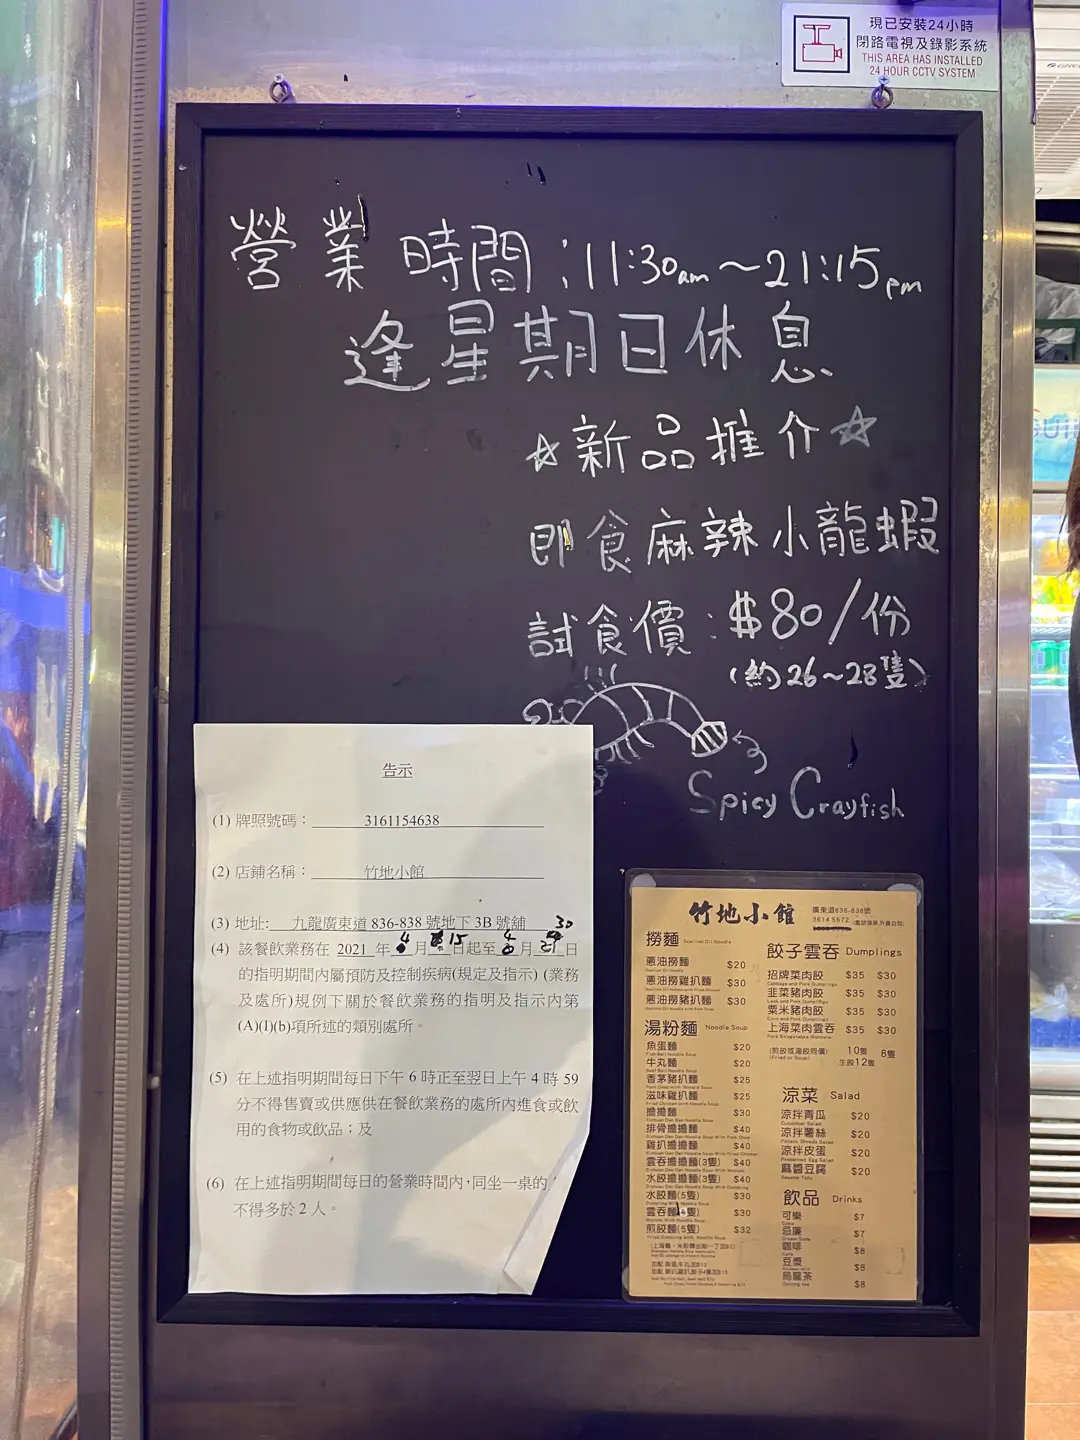 現已安裝24小時
閉路電視及錄影系統
THIS AREA HAS INSTALLED
24 HOUR CCTV SYSTEM
營業時間:11:30am~21:15pm
逢星期日休息
☆新品推介☆
即食麻辣小龍蝦
試食價:$80/份
(約26~28隻)
Spicy Crayfish
告示
(1) 牌照號碼: 3161154638
(2) 店鋪名稱: 竹地小館
(3) 地址: 九龍廣東道 836-838 號地下 3B 號舖
(4) 該餐飲業務在 2021 年 4 月 15 日起至 4 月 30 日
的指明期間內屬預防及控制疾病(規定及指示) (業務
及處所)規例下關於餐飲業務的指明及指示內第
(A)(I)(b)項所述的類別處所。
(5) 在上述指明期間每日下午 6 時正至翌日上午 4 時 59
分不得售賣或供應供在餐飲業務的處所內進食或飲
用的食物或飲品;及
(6) 在上述指明期間每日的營業時間內,同坐一桌的
不得多於 2 人。
竹地小館
廣東道836-838號
3614 5672
撈麵 Scallion Oil Noodle
蔥油撈麵 $20
蔥油撈雞扒麵 $30
蔥油撈豬扒麵 $30
湯粉麵 Noodle Soup
魚蛋麵 $20
牛丸麵 $20
香茅豬扒麵 $25
滋味雞扒麵 $25
擔擔麵 $30
排骨擔擔麵 $40
雞扒擔擔麵 $40
雲吞擔擔麵(3隻) $40
水餃擔擔麵(3隻) $40
水餃麵(5隻) $30
雲吞麵(隻) $30
煎餃麵(5隻) $32
餃子雲吞 Dumplings
招牌菜肉餃 $35 $30
韭菜豬肉餃 $35 $30
粟米豬肉餃 $35 $30
上海菜肉雲吞 $35 $30
(煎餃或湯餃同價) 10隻 8隻
(Fried or Soup) 生餃12隻
涼菜 Salad
涼拌青瓜 $20
涼拌薯絲 $20
涼拌皮蛋 $20
麻醬豆腐 $20
飲品 Drinks
可樂 $7
忌廉 $7
咖啡 $8
豆漿 $8
烏龍茶 $8